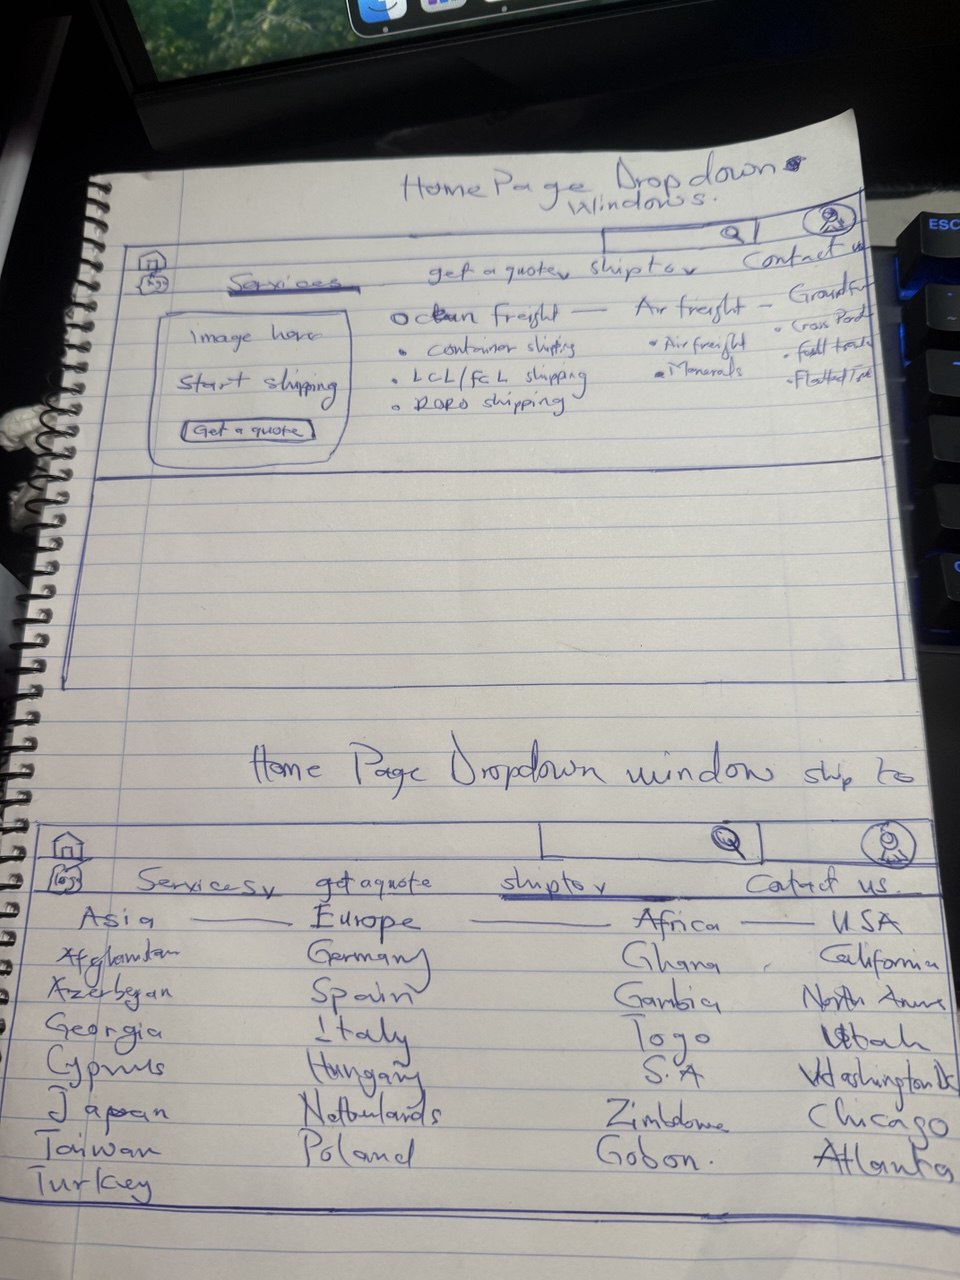 Home Page Dropdown
Windows.
Logo
Services
get a quote
ship to
Contact us
Image here
Start shipping
Get a quote
Ocean freight
Container shipping
LCL/FCL shipping
RORO shipping
Air freight
Air freight
Menerals
Home Page Dropdown window ship to
Logo
Services
get a quote
ship to
Contact us.
Asia Europe Africa USA
Afghanstan Germany Ghana California
Azerbegan Spain Gambia North
Georgia Italy Togo Utah
Cyprus Hungary S.A Washington Dc
Japan Netherlands Zimbabwe Chicago
Taiwan Poland Gobon. Atlanta
Turkey
ESC